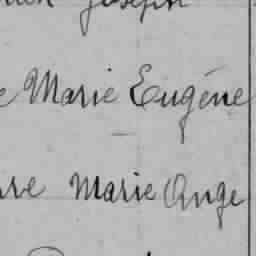 Joseph
Marie Eugène
Marie Ange